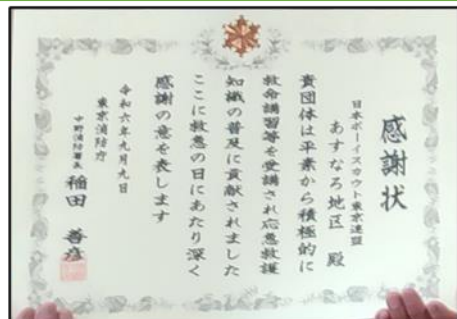 感謝状
日本ボーイスカウト東京連盟
あすなろ地区 殿
貴団体は平素から積極的に
救命講習等を受講され応急救護
知識の普及に貢献されました
ここに救急の日にあたり深く
感謝の意を表します
令和六年九月九日
東京消防庁
中野消防署長 稲田 善彦